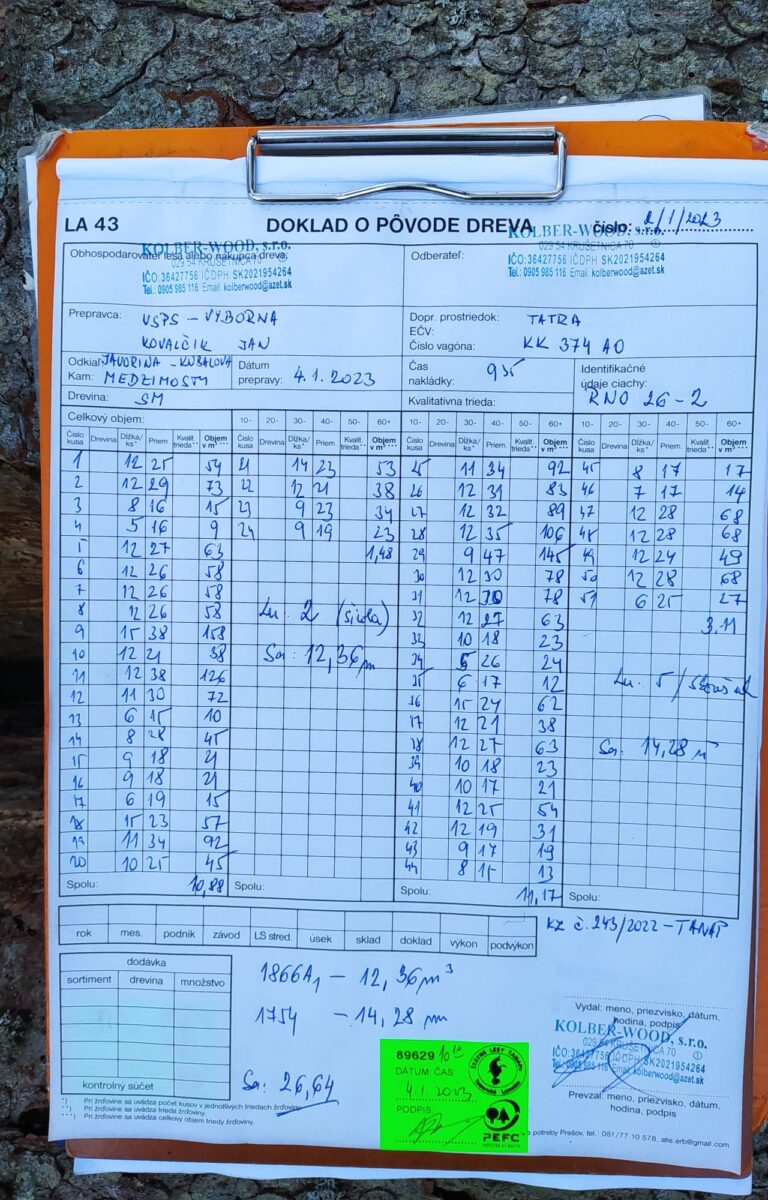 LA 43 DOKLAD O PÔVODE DREVA číslo: 2/1/2023
Obhospodarovateľ lesa alebo nákupca dreva:
KOLBER-WOOD, s.r.o.
029 54 KRUŠETNICA 70
IČO:36427756 IČDPH SK2021954264
Tel.: 0905 985 116 Email: kolberwood@azet.sk
Odberateľ:
KOLBER-WOOD, s.r.o.
029 54 KRUŠETNICA 70
IČO:36427756 IČDPH SK2021954264
Tel.: 0905 985 116 Email: kolberwood@azet.sk
Prepravca: VSPS - VÝBORNA
KOVALČIK JAN
Dopr. prostriedok: TATRA
EČV:
Číslo vagóna: KK 374 AO
Odkiaľ: JAVORINA - KUBALOVA
Kam: MEDZIMOSTY
Dátum prepravy: 4.1.2023
Čas nakládky: 935
Identifikačné údaje ciachy:
RNO 26-2
Drevina: SM
Kvalitatívna trieda:
Celkový objem: 10- 20- 30- 40- 50- 60+ 10- 20- 30- 40- 50- 60+ 10- 20- 30- 40- 50- 60+
Číslo kusa Drevina Dĺžka/ks* Priem. Kvalit. trieda** Objem v m³ *** Číslo kusa Drevina Dĺžka/ks* Priem. Kvalit. trieda** Objem v m³ *** Číslo kusa Drevina Dĺžka/ks* Priem. Kvalit. trieda** Objem v m³ *** Číslo kusa Drevina Dĺžka/ks* Priem. Kvalit. trieda** Objem v m³ ***
1 12 25 54 21 14 23 53 25 11 34 92 45 8 17 17
2 12 29 73 22 12 21 38 26 12 31 83 46 7 17 14
3 8 16 15 23 9 23 34 27 12 32 89 47 12 28 68
4 5 16 9 24 9 19 23 28 12 35 106 48 12 28 68
5 12 27 63 1,48 29 9 47 145 49 12 24 49
6 12 26 58 30 12 30 78 50 12 28 68
7 12 26 58 31 12 30 78 51 6 25 27
8 12 26 58 32 12 27 63 3.11
9 15 38 158 33 10 18 23
10 12 21 38 Sa: 12,36 m 34 5 26 24
11 12 38 126 35 6 17 12
12 11 30 72 36 15 24 62
13 6 15 10 37 12 21 38
14 8 28 45 38 12 27 63 Sa: 14,28 m
15 9 18 21 39 10 18 23
16 9 18 21 40 10 17 21
17 6 19 15 41 12 25 54
18 15 23 57 42 12 19 31
19 11 34 92 43 9 17 19
20 10 25 45 44 8 15 13
Spolu: 10,88 Spolu: Spolu: 11,17 Spolu:
rok mes. podnik závod LS stred. úsek sklad doklad výkon podvýkon
KZ č. 243/2022 - TANAP
dodávka
sortiment drevina množstvo
kontrolný súčet
1866A1 - 12,36 m³
1754 - 14,28 m
Sa: 26,64
89629 10 10
DÁTUM ČAS
4.1.2023
PODPIS
ŠTÁTNE LESY TANAPU
PEFC
Vydal: meno, priezvisko, dátum,
hodina, podpis
KOLBER-WOOD, s.r.o.
029 54 KRUŠETNICA 70
IČO:36427756 IČDPH SK2021954264
Tel.: 0905 985 116 Email: kolberwood@azet.sk
Prevzal: meno, priezvisko, dátum,
hodina, podpis
*) Pri žrďovine sa uvádza počet kusov v jednotlivých triedach žrďoviny.
**) Pri žrďovine sa uvádza trieda žrďoviny.
***) Pri žrďovine sa uvádza celkový objem triedy žrďoviny.
potreby Prešov, tel.: 051/77 10 578, atis.erb@gmail.com